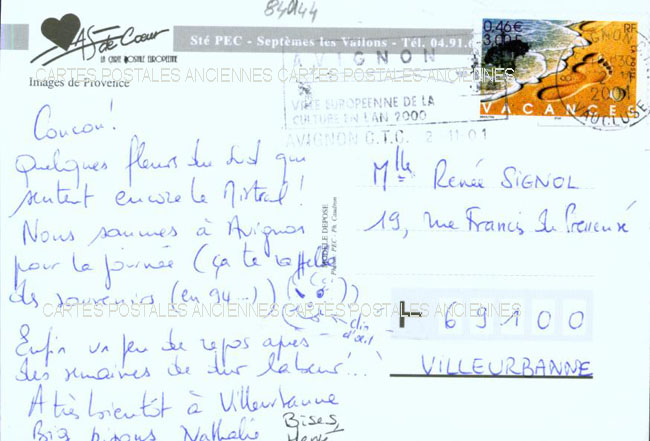 84044
As de Coeur
LA CARTE POSTALE EUROPEENNE
Sté PEC - Septèmes les Vallons - Tél. 04.91.6
Images de Provence
AVIGNON
VILLE EUROPEENNE DE LA
CULTURE EN L'AN 2000
AVIGNON C.T.C. 2-11-01
0,46 €
3,00 F
RF
LA POSTE
2001
VACANCES
AVIGNON
VAUCLUSE
CARTES POSTALES ANCIENNES CARTES POSTALES ANCIENNES
Coucou!
Quelques fleurs du Sud qui
sentent encore le Mistral!
Nous sommes à Avignon
pour la journée (ça te rappelle
des souvenirs (en 94...)
clin
d'oeil
Enfin un peu de repos après
des semaines de dur labeur!...
A très bientôt à Villeurbanne
Bisous Nathalie
Bises,
MODELE DEPOSE
Photo: PEC
Mlle Renée SIGNOL
19, rue Francis de Pressensé
CARTES POSTALES ANCIENNES CARTES POSTALES ANCIENNES
69100
VILLEURBANNE